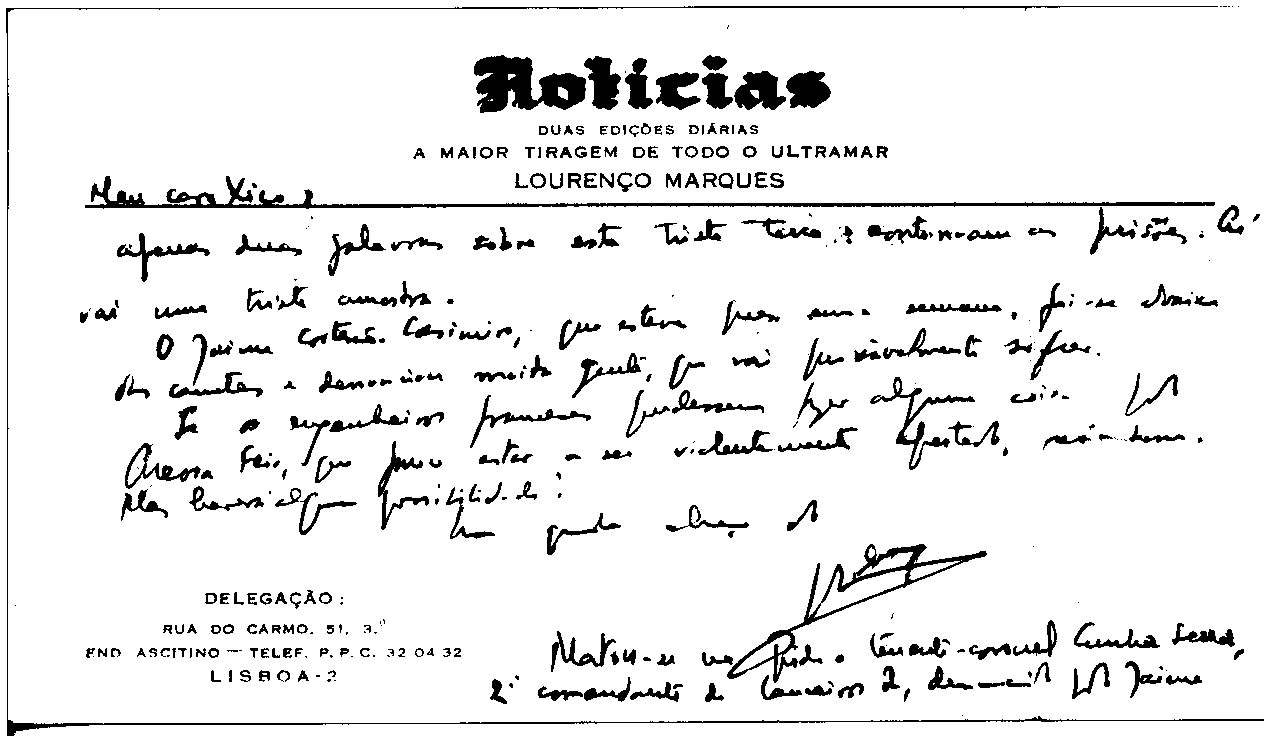 Notícias
DUAS EDIÇÕES DIÁRIAS
A MAIOR TIRAGEM DE TODO O ULTRAMAR
LOURENÇO MARQUES
Meu caro Xico,
apenas duas palavras sobre esta triste terra: continuam as prisões. Aí
vai uma triste amostra.
O Jaime Casimiro, que esteve preso uma semana, foi-se abaixo
das canetas e denunciou muita gente, que vai possivelmente sofrer.
Se os engenheiros franceses pudessem fazer alguma coisa pelo
Feio, que julgo estar a ser violentamente apertado, seria bom.
Mas haverá alguma possibilidade?
Um grande abraço do
DELEGAÇÃO:
RUA DO CARMO, 51, 3.º
END. ASCITINO — TELEF. P. P. C. 32 04 32
LISBOA-2
Matou-se na Pide o tenente-coronel Cunha
2º comandante de Lanceiros 2, denunciado pelo Jaime